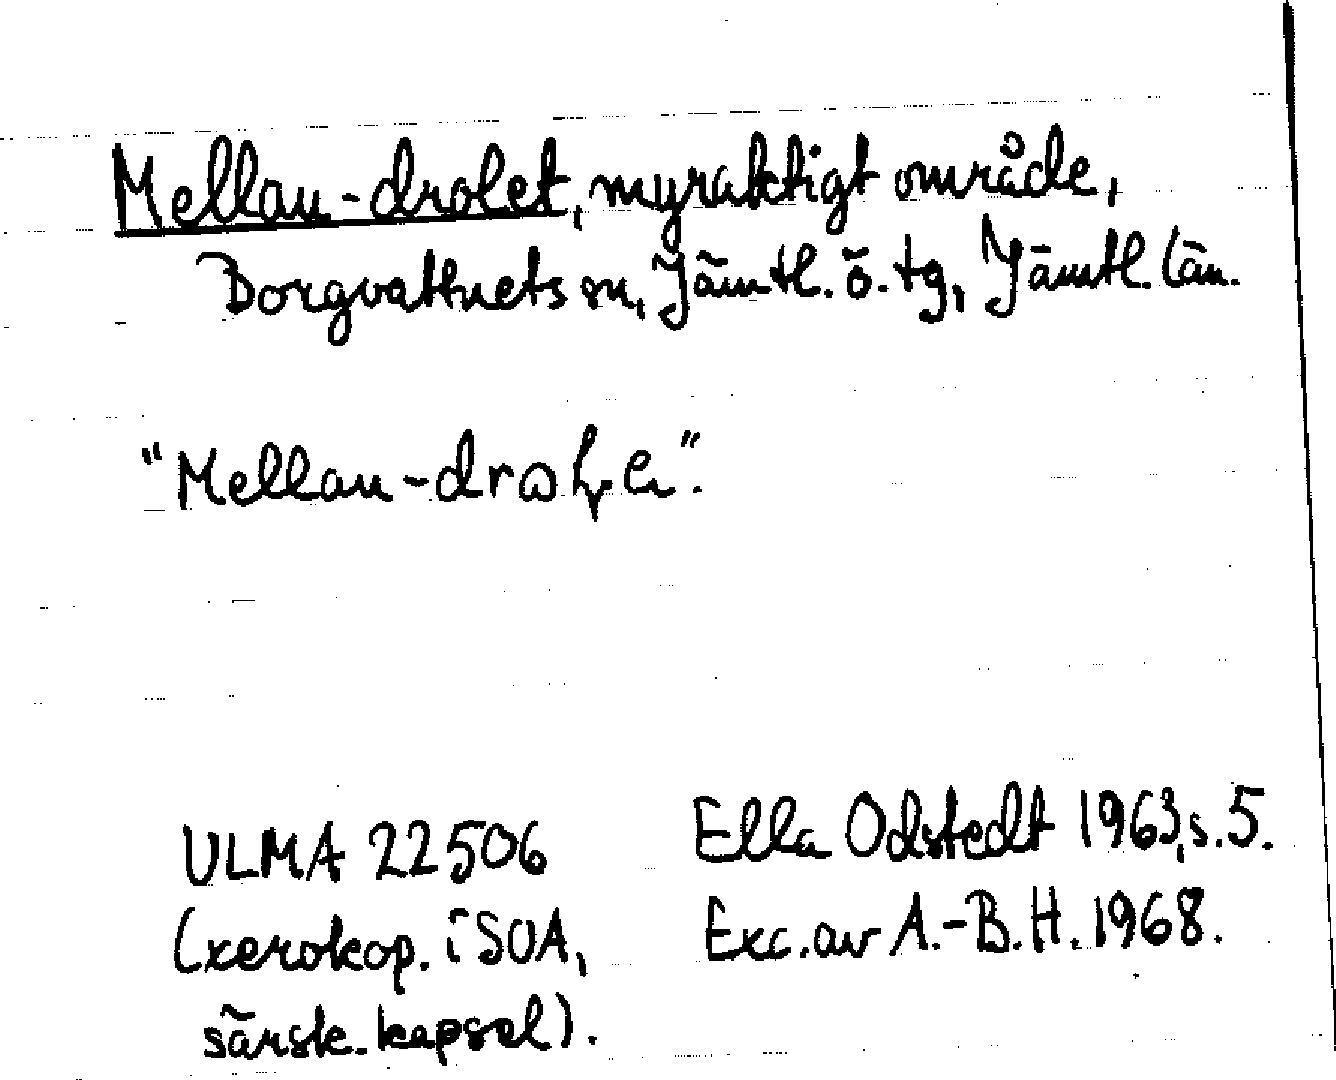 Mellan-drolet, myraktigt område,
Borgvattnets sn, Jämtl. ö. tg, Jämtl. län.
ULMA 22506
(xerokop. i SOA,
särsk. kapsel).
Ella Odstedt 1963, s. 5.
Exc. av A.-B. H. 1968.